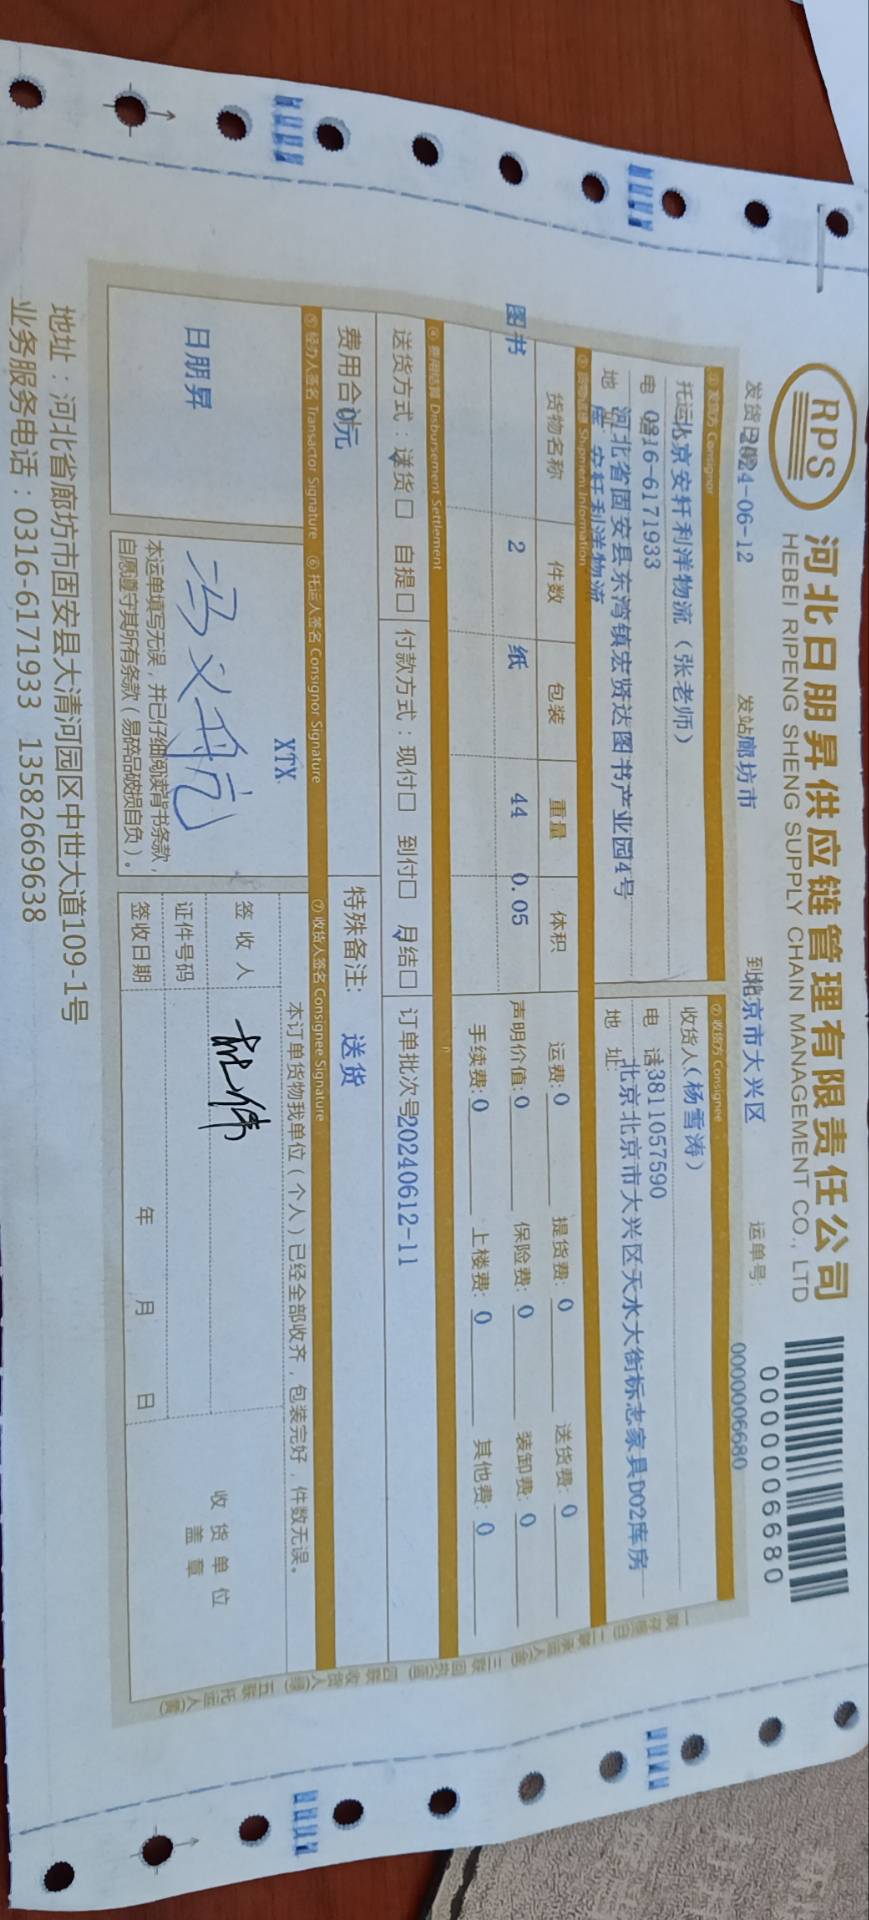 RPS
河北日朋昇供应链管理有限责任公司
HEBEI RIPENG SHENG SUPPLY CHAIN MANAGEMENT CO., LTD
0000006680
发货日期 2024-06-12 发站 廊坊市 到站 北京市大兴区 运单号: 0000006680
① 发货方 Consignor ② 收货方 Consignee
托运 北京安轩利洋物流（张老师） 收货人（杨雪涛）
电 话 0316-6171933 电 话 13811057590
地 址 河北省固安县东湾镇宏贤达图书产业园4号库 安轩利洋物流 地 址: 北京北京市大兴区天水大街标志家具D02库房
③ 货物信息 Shipment Information
货物名称 件数 包装 重量 体积 运费: 0 提货费: 0 送货费: 0
图书 2 纸 44 0.05 声明价值: 0 保险费: 0 装卸费: 0
手续费: 0 上楼费: 0 其他费: 0
④ 费用结算 Disbursement Settlement
送货方式：送货☑ 自提□ 付款方式：现付□ 到付□ 月结☑ 订单批次号 20240612-11
费用合计 0元 特殊备注: 送货
⑤ 经办人签名 Transactor Signature ⑥ 托运人签名 Consignor Signature ⑦ 收货人签名 Consignee Signature
日朋昇
XTX
本运单填写无误，并已仔细阅读背书条款，
自愿遵守其所有条款（易碎品破损自负）。
本订单货物我单位（个人）已经全部收齐，包装完好，件数无误。
签 收 人
证件号码
签收日期 年 月 日
收 货 单 位
盖 章
地址：河北省廊坊市固安县大清河园区中世大道109-1号
业务服务电话：0316-6171933 13582669638